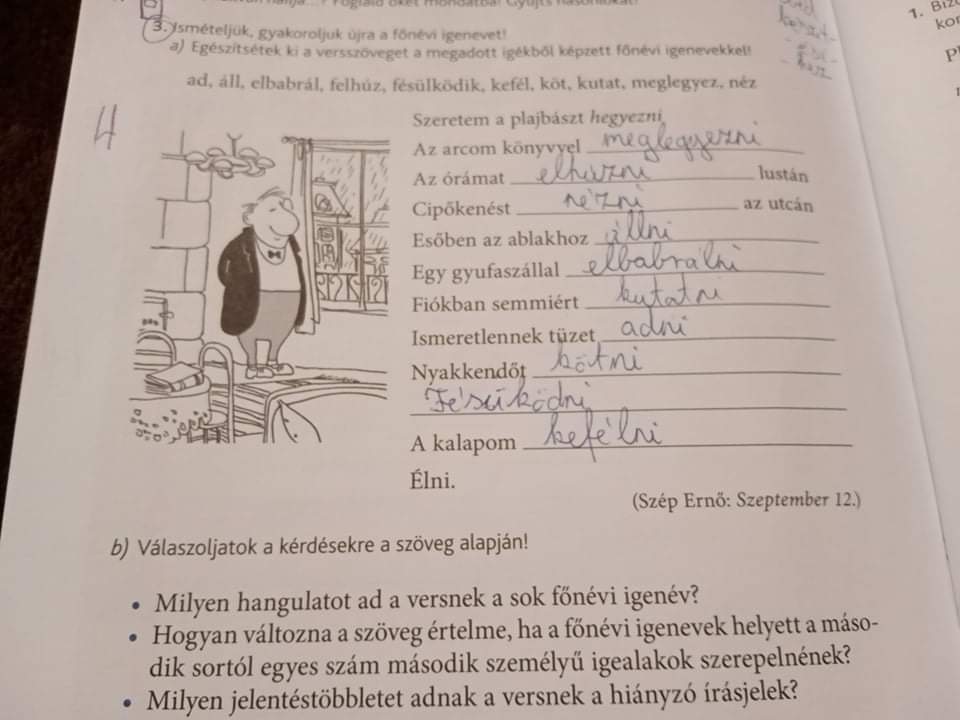 3. Ismételjük, gyakoroljuk újra a főnévi igenevet!
1. Biz
a) Egészítsétek ki a versszöveget a megadott igékből képzett főnévi igenevekkel!
ad, áll, elbabrál, felhúz, fésülködik, kefél, köt, kutat, meglegyez, néz
4
Szeretem a plajbászt hegyezni
Az arcom könyvvel meglegyezni
Az órámat elhúzni lustán
Cipőkenést nézni az utcán
Esőben az ablakhoz állni
Egy gyufaszállal elbabrálni
Fiókban semmiért kutatni
Ismeretlennek tüzet adni
Nyakkendőt kötni
Fésűködni
A kalapom kefélni
Élni.
(Szép Ernő: Szeptember 12.)
b) Válaszoljatok a kérdésekre a szöveg alapján!
• Milyen hangulatot ad a versnek a sok főnévi igenév?
• Hogyan változna a szöveg értelme, ha a főnévi igenevek helyett a máso-
dik sortól egyes szám második személyű igealakok szerepelnének?
• Milyen jelentéstöbbletet adnak a versnek a hiányzó írásjelek?